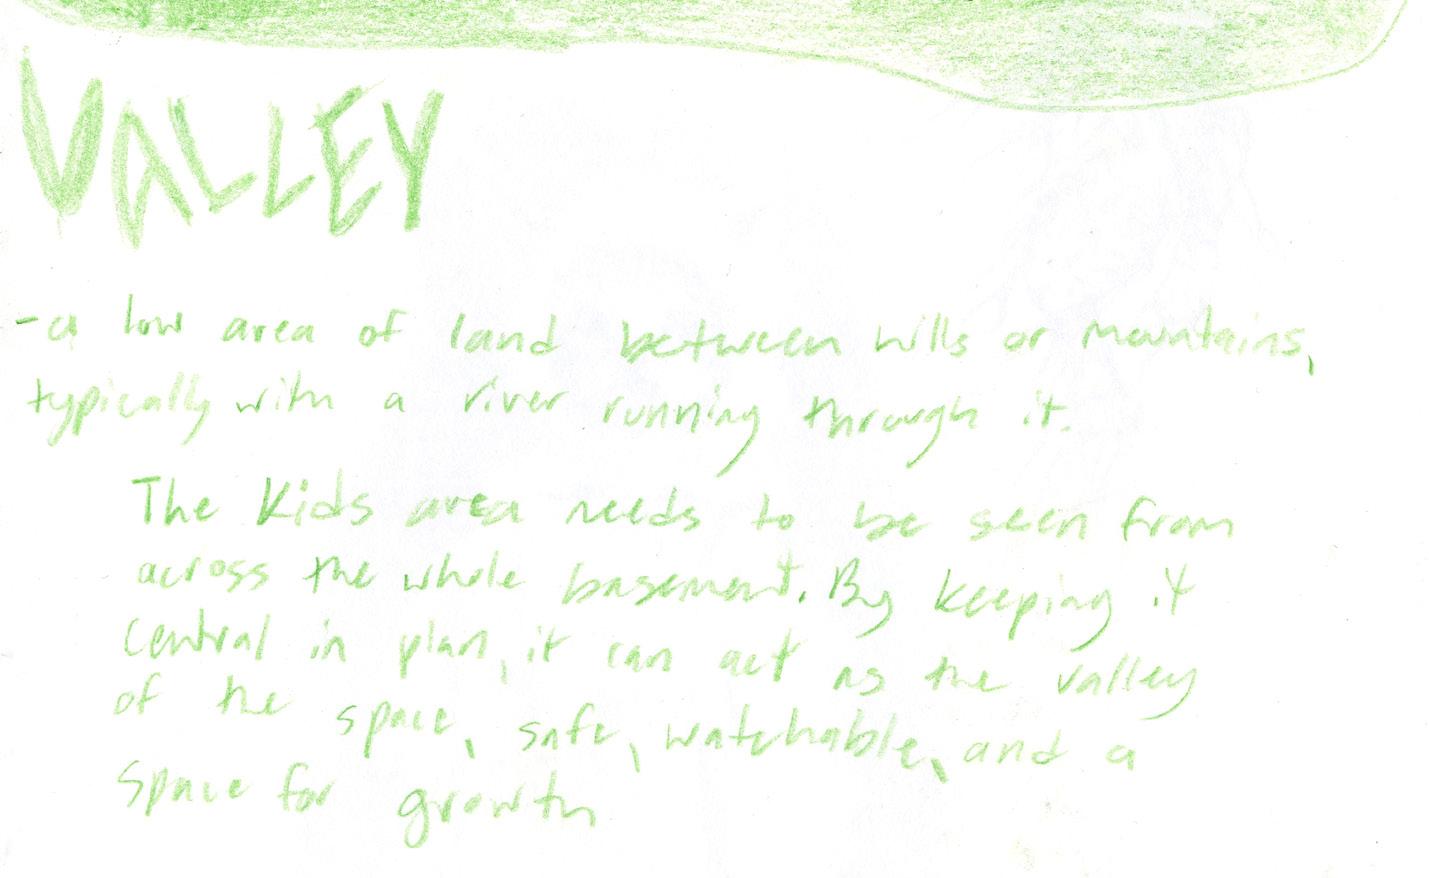 VALLEY
-a low area of land between hills or mountains,
typically with a river running through it.
The Kids area needs to be seen from
across the whole basement. By keeping it
central in plan, it can act as the valley
of the space, safe, watchable, and a
space for growth